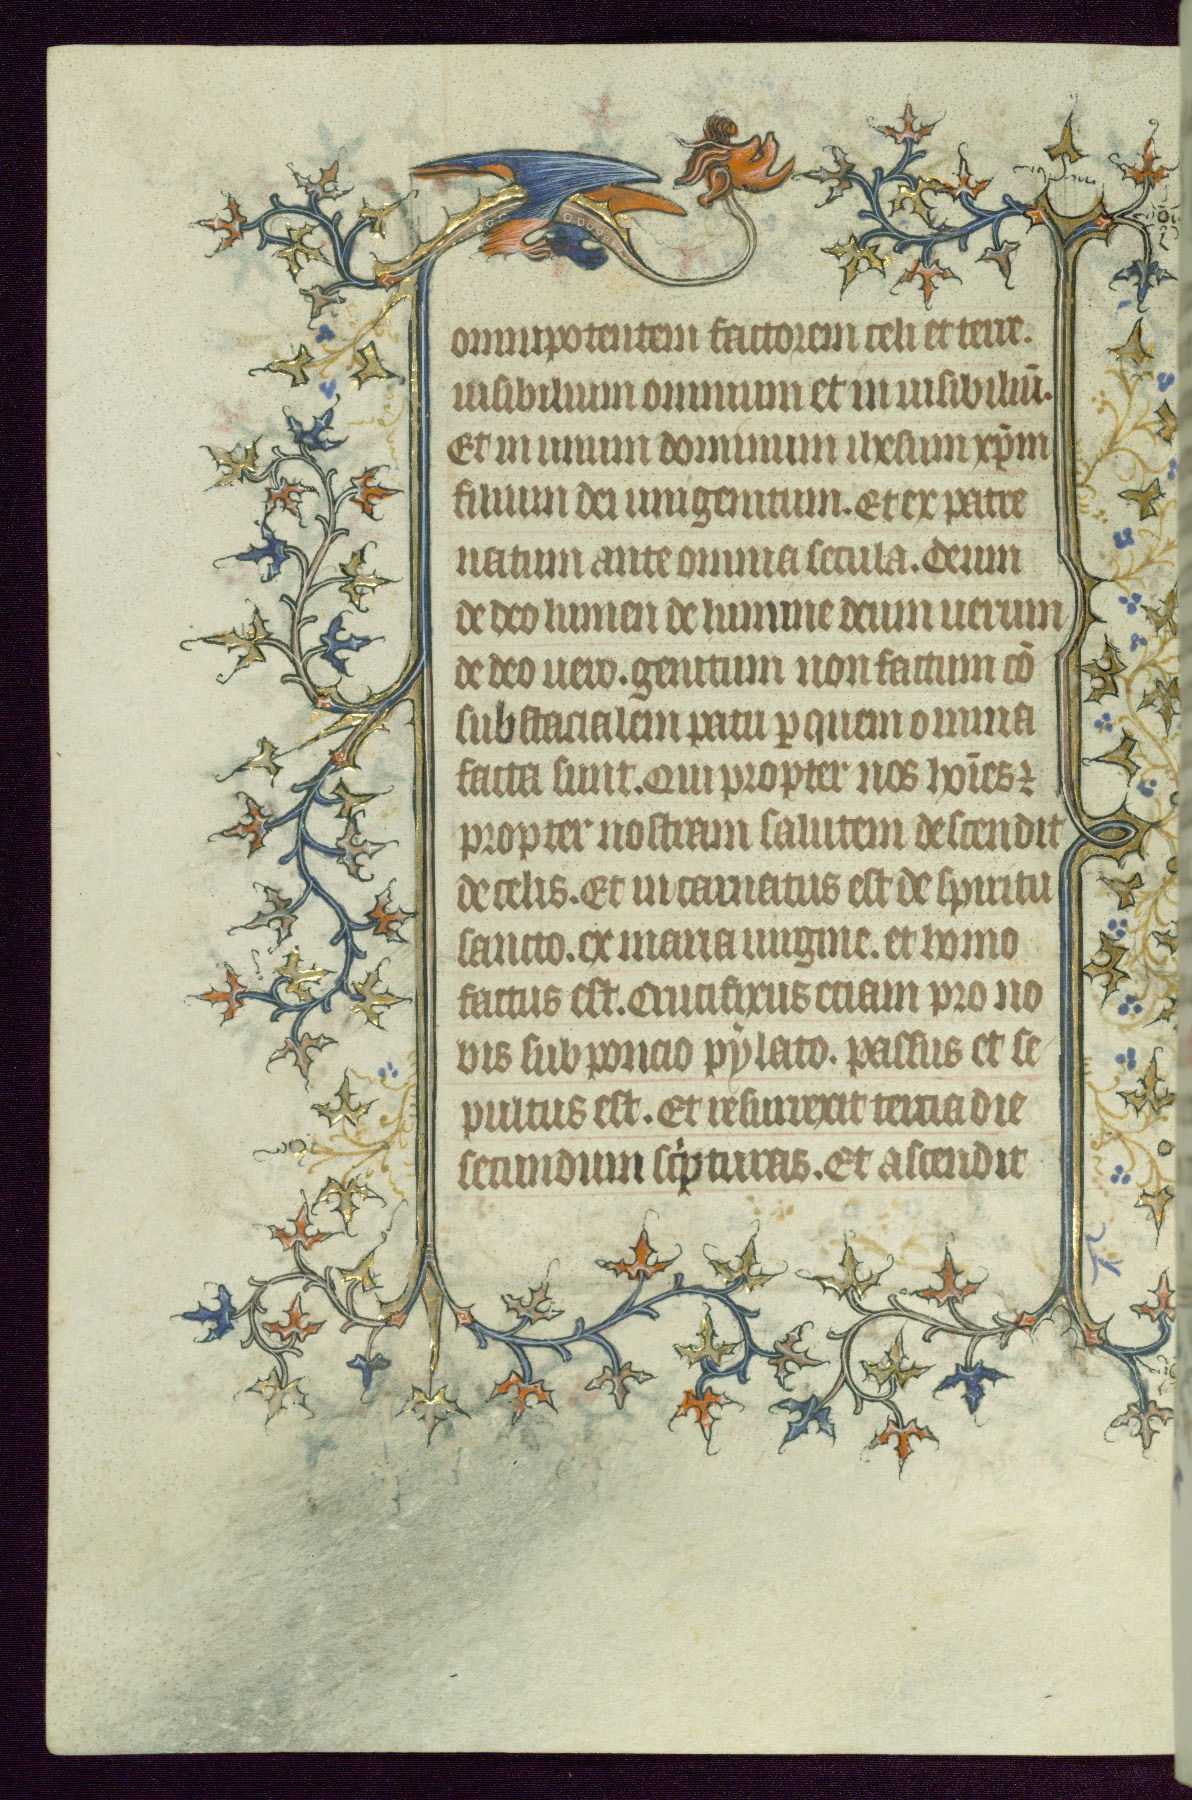 omnipotentem factorem celi et terre.
uisibilium omnium et in uisibiliū.
Et in unum dominum ihesum xp̄m
filium dei unigenitum. Et ex patre
natum ante omnia secula. Deum
de deo lumen de lumine deum uerum
de deo uero. genitum non factum cō
substacialem patri ꝑ quem omnia
facta sunt. Qui propter nos hoīes ⁊
propter nostram salutem descendit
de celis. Et in carnatus est de spiritu
sancto. ex maria uirgine. et homo
factus est. Crucifixus etiam pro no
bis sub poncio pẏlato. passus et se
pultus est. Et resurrexit tercia die
secundum scͥpturas. Et ascendit